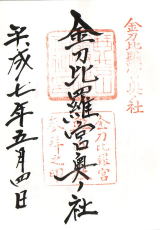 金刀比羅宮奥社
金刀比羅宮奥ノ社
平成七年五月四日
金刀比羅宮